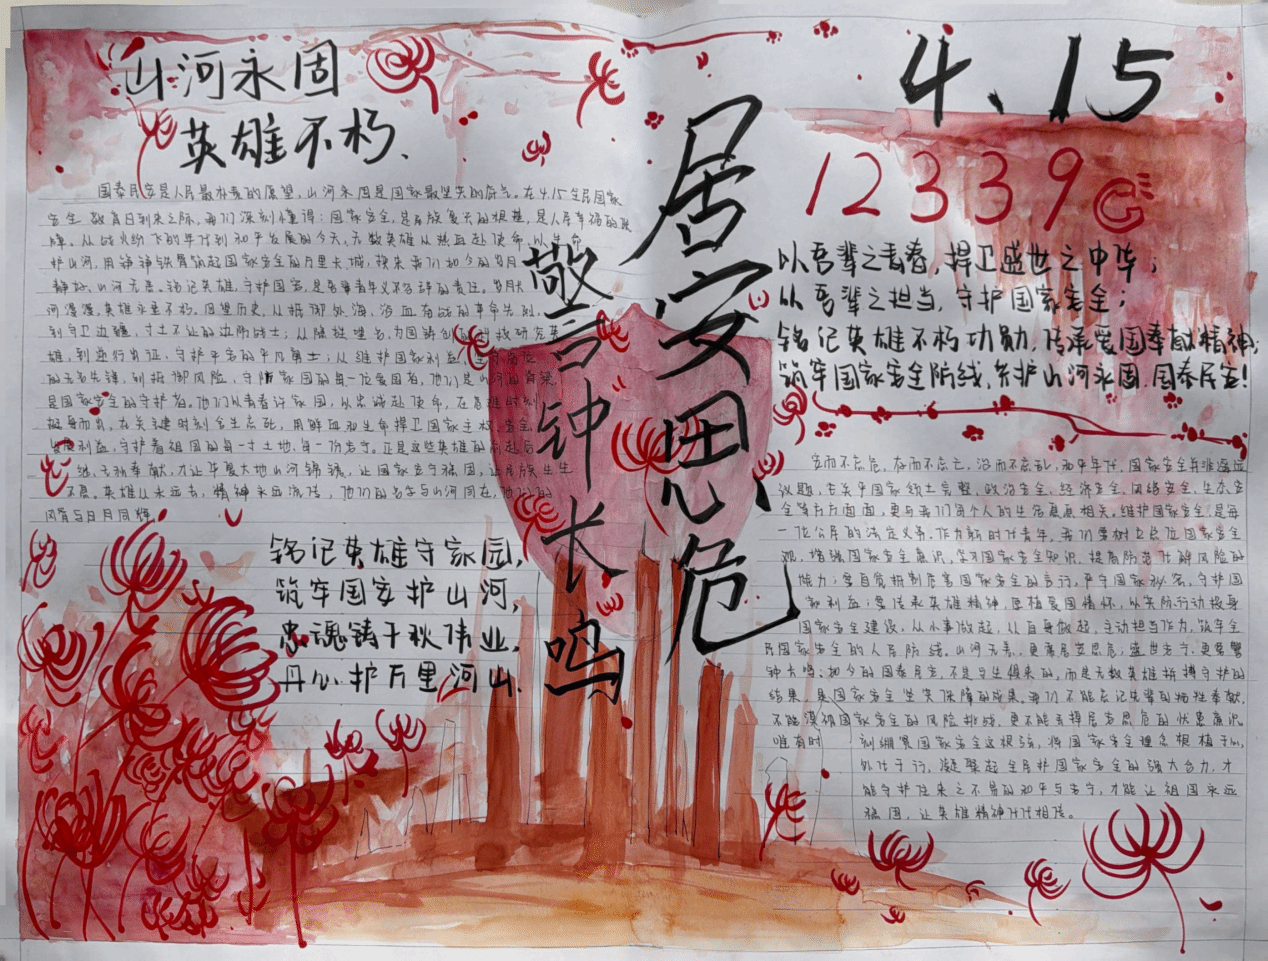 山河永固
英雄不朽、
国泰民安是人民最朴素的愿望，山河永固是国家最坚实的底气。在4.15全民国家
安全教育日到来之际，我们深刻懂得：国家安全，是民族复兴的根基，是人民幸福的
障。从战火纷飞的年代到和平发展的今天，无数英雄以热血赴使命，以生命
护山河，用铮铮铁骨筑起国家安全的万里长城，换来我们如今的岁月
静好、山河无恙。铭记英雄，守护国家，是吾辈义不容辞的责任。岁月长
河漫漫，英雄永垂不朽。回望历史，从抵御外海，浴血奋战的革命先烈，
到守卫边疆，寸土不让的边防战士；从隐姓埋名，为国铸剑的科技研究英
雄，到逆行出征，守护平安的平凡勇士；从维护国家利益
的无名先锋，到抵御风险，守护家国的每一位爱国者，他们是山河的脊梁，
是国家安全的守护者。他们以青春许家国，以忠诚赴使命，在危难时刻
挺身而出，在关键时刻舍生忘死，用鲜血和生命捍卫国家主权、安全、
利益，守护着祖国的每一寸土地，每一份安宁。正是这些英雄的前赴后
继，无私奉献，才让华夏大地山河锦绣，让国家安宁稳固，让民族生生
不息。英雄从未远去，精神永远流传，他们的名字与山河同在，他们的
风骨与日月同辉
铭记英雄守家园，
筑牢国安护山河，
忠魂铸千秋伟业，
丹心护万里河山.
居安思危
警钟长鸣
4、15
12339
以吾辈之青春，捍卫盛世之中华；
以吾辈之担当，守护国家安全；
铭记英雄不朽功勋，传承爱国奉献精神；
筑牢国家安全防线，共护山河永固，国泰民安！
安而不忘危，存而不忘亡，治而不忘乱，和平年代，国家安全并非遥远
议题，它关乎国家领土完整、政治安全、经济安全、网络安全、生态安
全等方方面面，更与我们每个人的生活息息相关。维护国家安全，是每
一位公民的法定义务。作为新时代青年，我们要树立总体国家安全
观，增强国家安全意识，学习国家安全知识，提高防范化解风险的
能力；要自觉抵制危害国家安全的言行，严守国家秘密，守护国
家利益；要传承英雄精神，厚植爱国情怀，以实际行动投身
国家安全建设，从小事做起，从自身做起，主动担当作为，筑牢全
民国家安全的人民防线。山河无恙，更需居安思危；盛世安宁，更要警
钟长鸣。如今的国泰民安，不是与生俱来的，而是无数英雄拼搏守护的
结果，是国家安全坚实保障的成果。我们不能忘记先辈的牺牲奉献，
不能漠视国家安全的风险挑战，更不能丢掉居安思危的忧患意识。
唯有时刻绷紧国家安全这根弦，将国家安全理念根植于心，
外化于行，凝聚起全民护国家安全的强大合力，才
能守护住来之不易的和平与安宁，才能让祖国永远
稳固，让英雄精神代代相传。